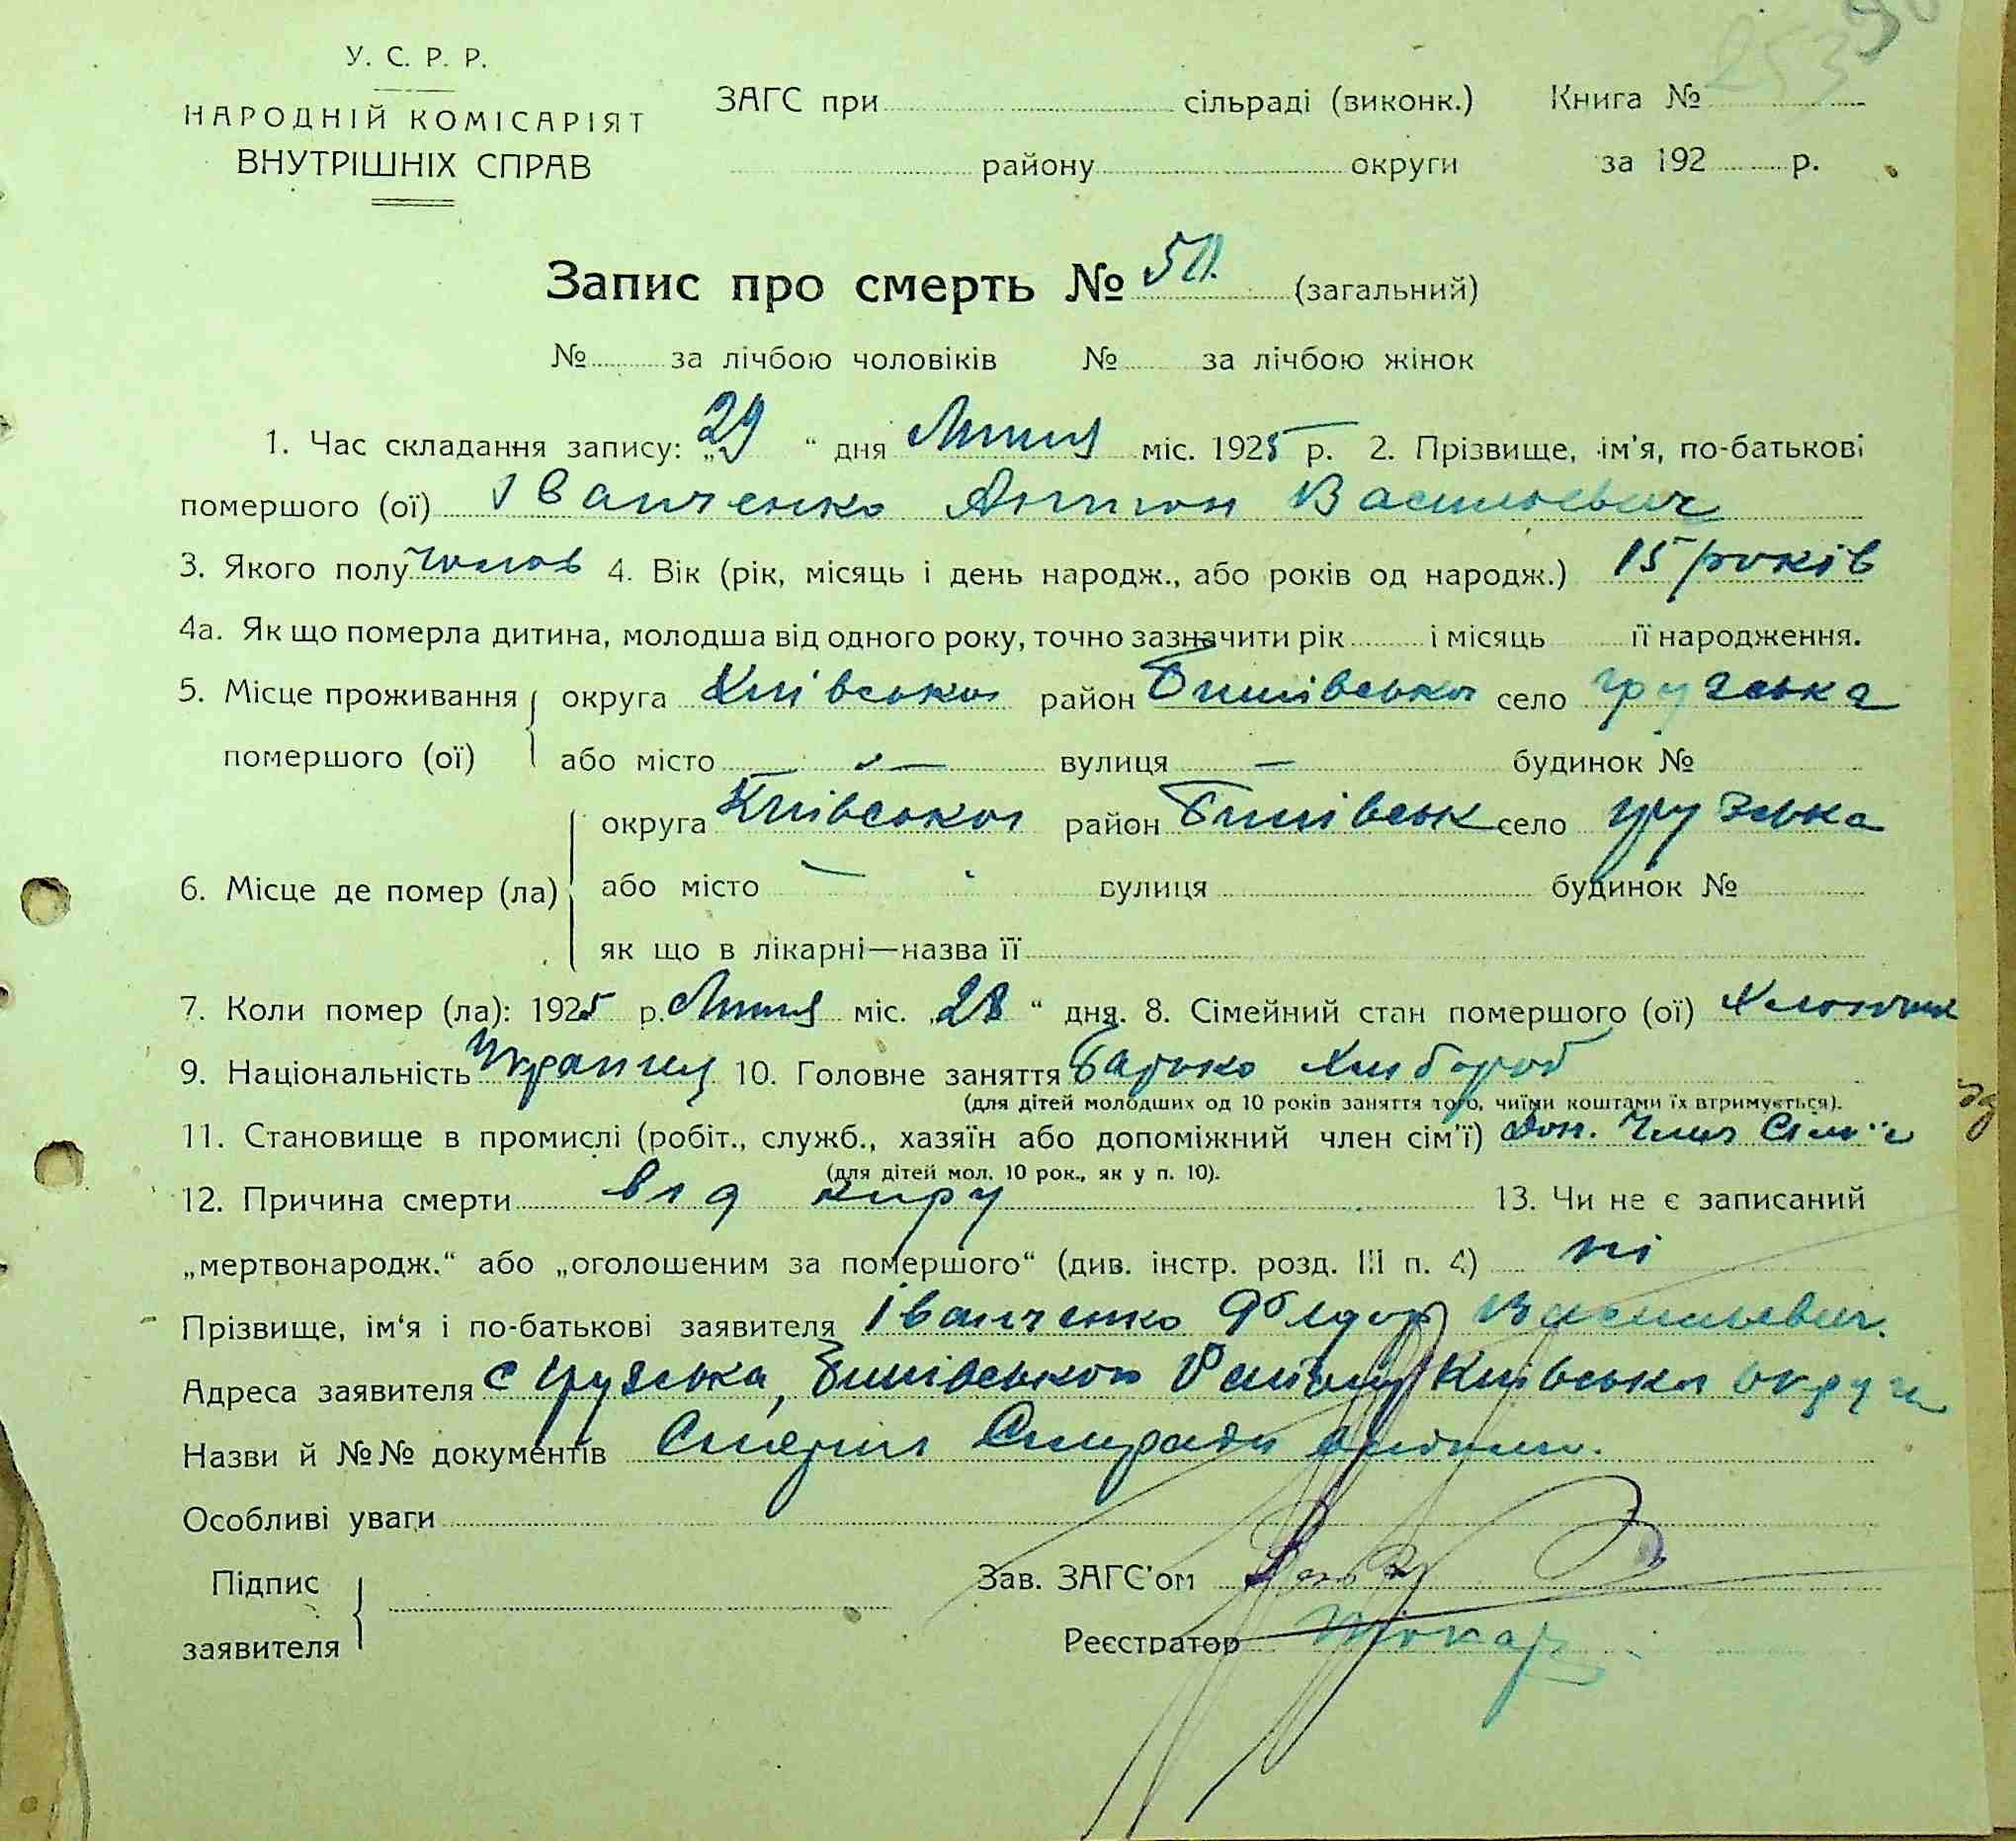 У. С. Р. Р.
НАРОДНІЙ КОМІСАРІЯТ
ВНУТРІШНІХ СПРАВ
ЗАГС при сільраді (виконк.) Книга №
району округи за 192 р.
Запис про смерть № 50. (загальний)
№ за лічбою чоловіків № за лічбою жінок
1. Час складання запису: „29 “ дня Липця міс. 1925 р. 2. Прізвище, ім'я, по-батькові
помершого (ої) Іванченко Антон Васильевич
3. Якого полу чолов 4. Вік (рік, місяць і день народж., або років од народж.) 15 років
4а. Як що померла дитина, молодша від одного року, точно зазначити рік і місяць її народження.
5. Місце проживання округа Київська район Бишівська село Грузська
помершого (ої) або місто — вулиця — будинок №
округа Київська район Бишівськ село Грузська
6. Місце де помер (ла) або місто — вулиця будинок №
як що в лікарні—назва її
7. Коли помер (ла): 1925 р. Липця міс. „28 “ дня. 8. Сімейний стан помершого (ої)
9. Національність 10. Головне заняття Батько Хлибороб
(для дітей молодших од 10 років заняття того, чиїми коштами їх втримується).
11. Становище в промислі (робіт., служб., хазяїн або допоміжний член сім'ї) Доп. Член Сім'ї
(для дітей мол. 10 рок., як у п. 10).
12. Причина смерти від 13. Чи не є записаний
„мертвонародж.“ або „оголошеним за помершого“ (див. інстр. розд. III п. 4) ні
Прізвище, ім'я і по-батькові заявителя Іванченко Федор Васильевич.
Адреса заявителя с Грузська, Бишівського Району Київська округи
Назви й №№ документів
Особливі уваги
Підпис
заявителя
Зав. ЗАГС'ом
Реєстратор Токар